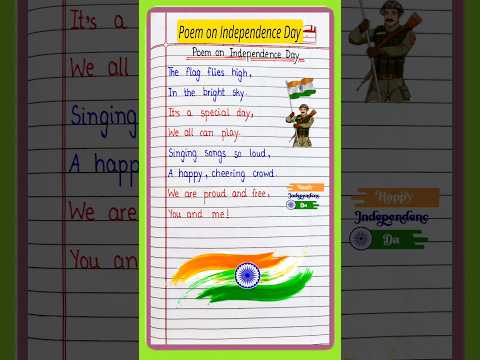 Poem on Independence Day
Poem on Independence Day
The flag flies high,
In the bright sky.
It's a special day,
We all can play.
Singing songs so loud,
A happy, cheering crowd.
We are proud and free,
You and me!
Happy
Independenc
Da
It's a
We all
Singing
A happ
We are
You an
Happy
Independenc
Da